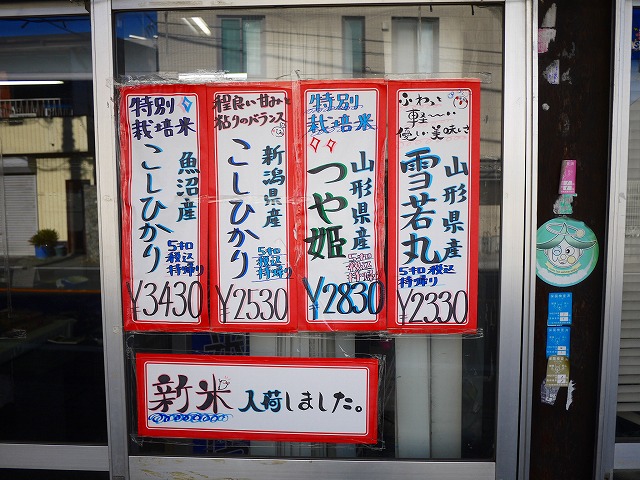 特別
栽培米
魚沼産
こしひかり
5キロ
税込
持帰り
¥3430
程良い甘みと
粘りのバランス
新潟県産
こしひかり
5キロ
税込
持帰り
¥2530
特別
栽培米
山形県産
つや姫
5キロ
税込
持帰り
¥2830
ふわっと
軽〜い
優しい美味しさ
山形県産
雪若丸
5キロ
税込
持帰り
¥2330
新米 入荷しました。